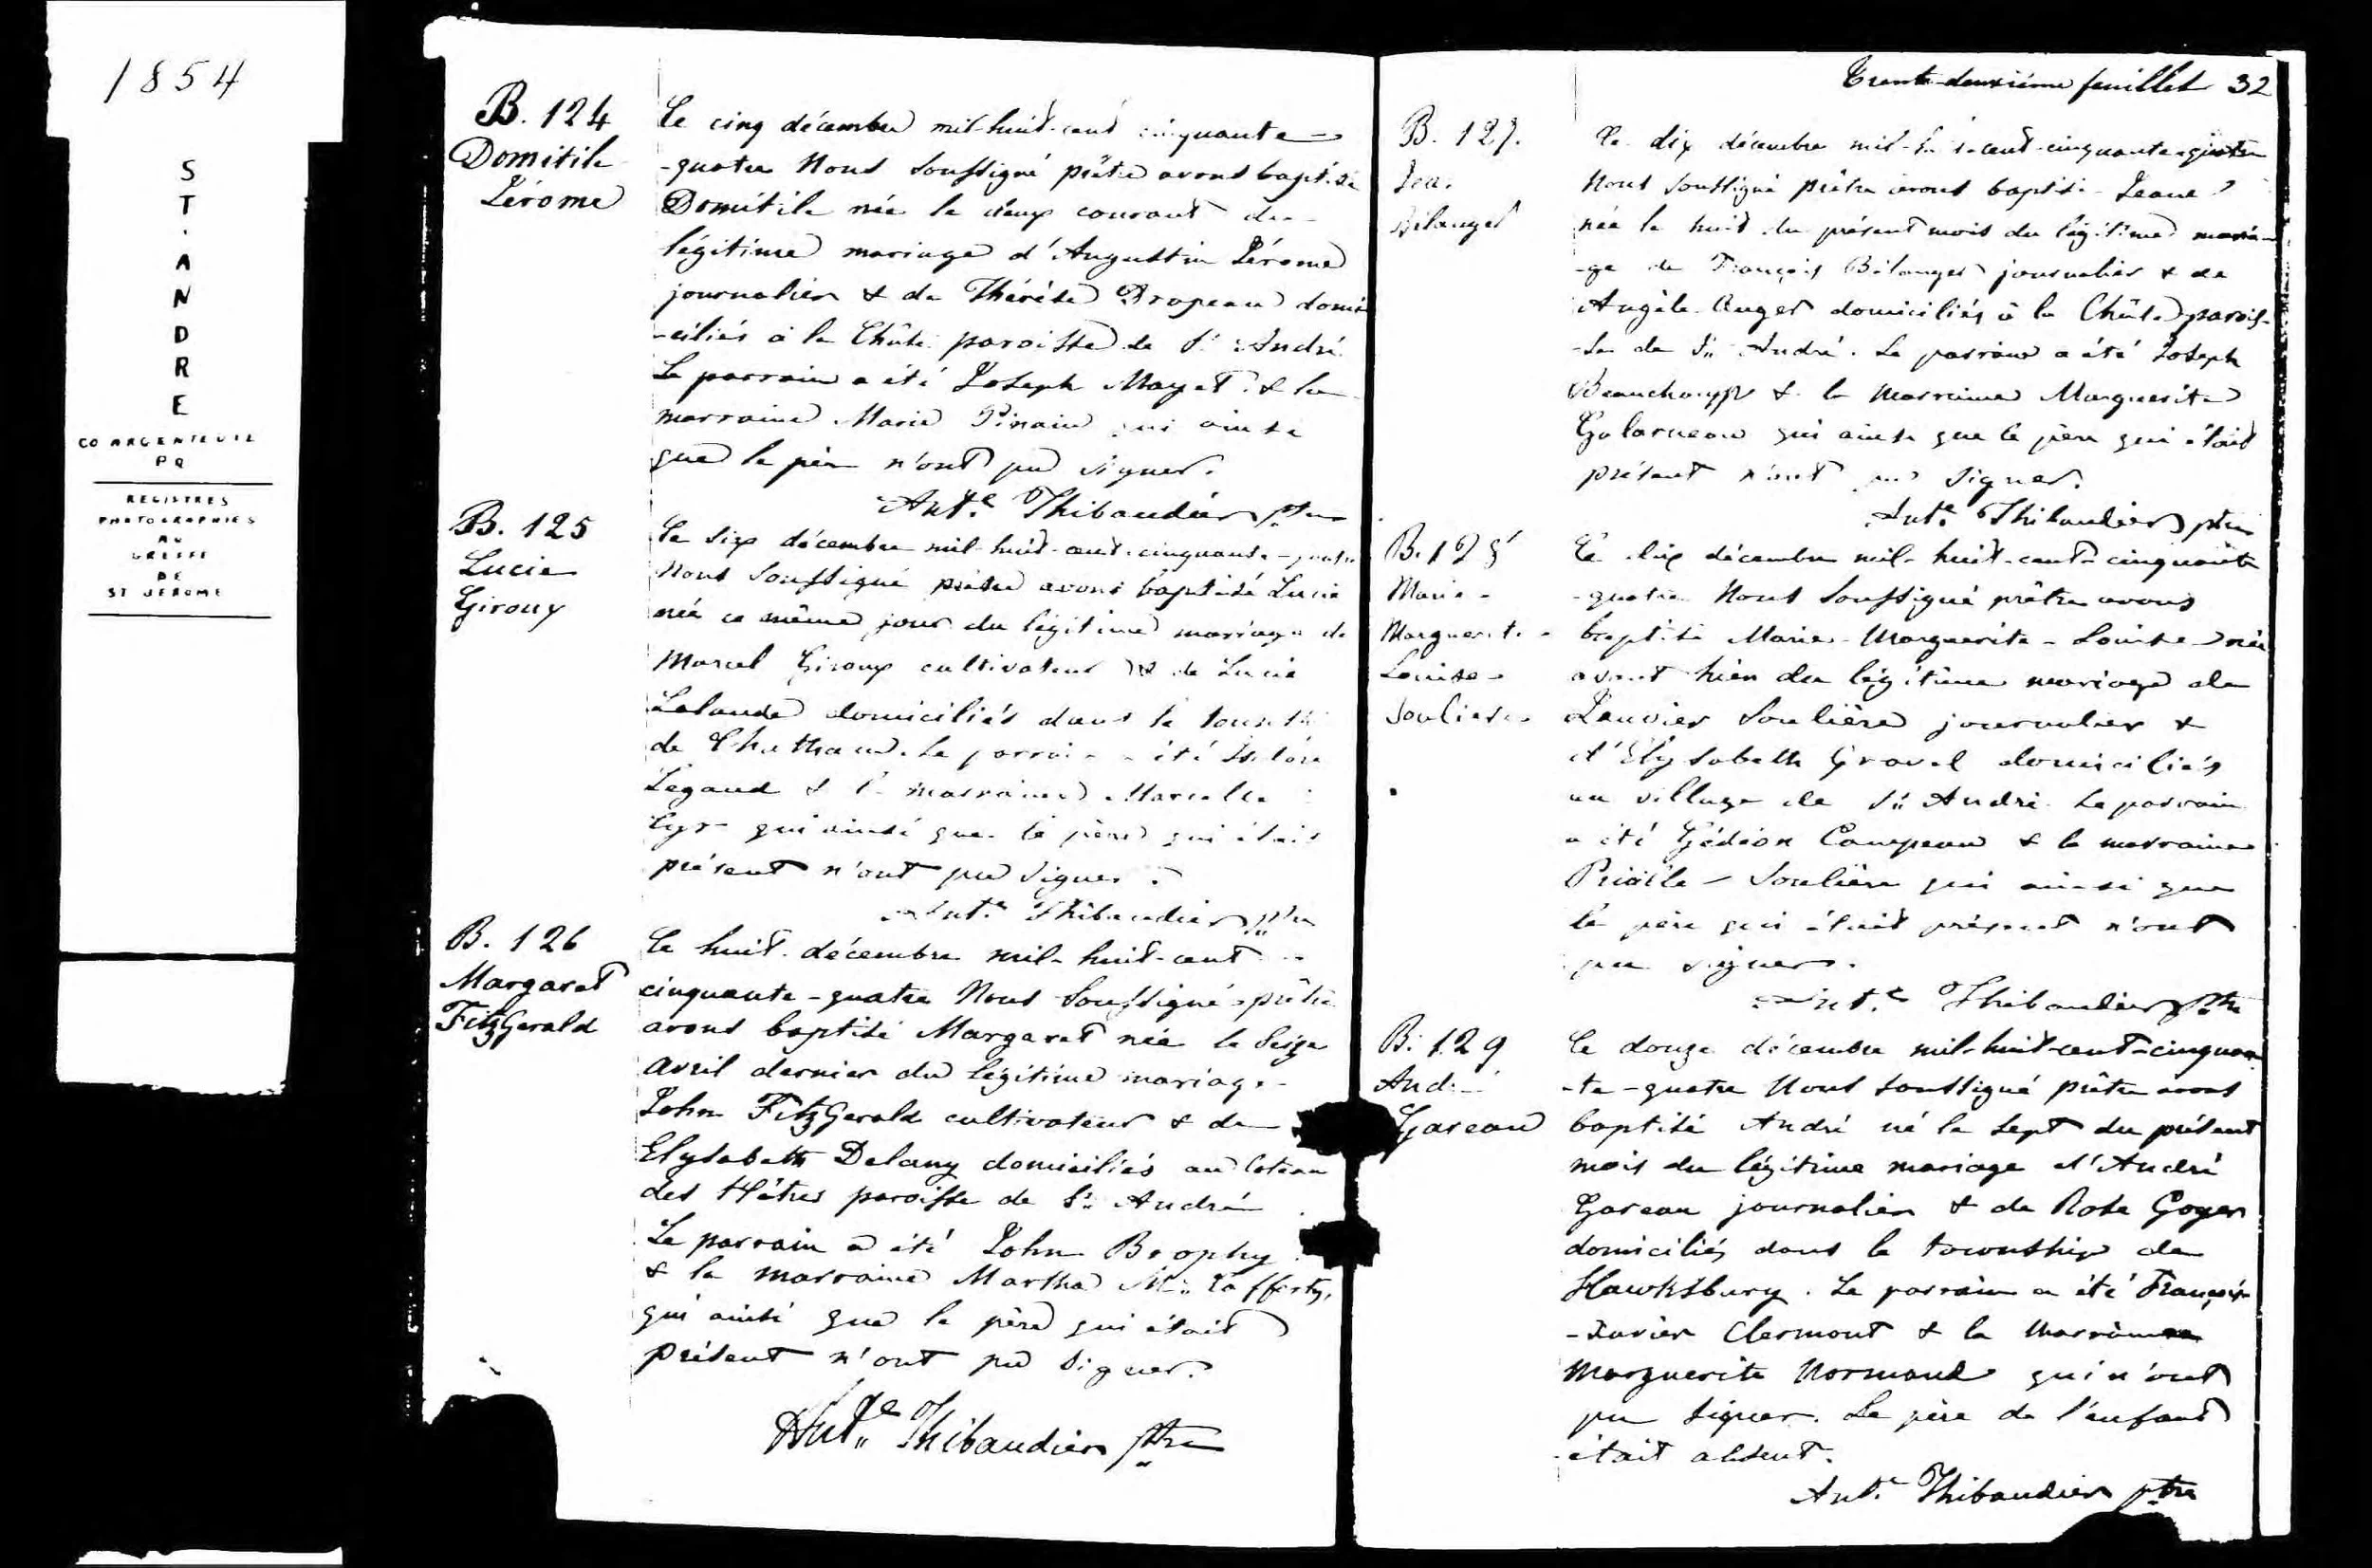 1854
S
T
.
A
N
D
R
E
CO ARGENTEUIL
PQ
REGISTRES
PHOTOGRAPHIES
AU
GREFFE
DE
ST JEROME
B. 124
Domitile
Jérome
Le cinq décembre mil-huit-cent cinquante-
-quatre Nous soussigné prêtre avons baptisé
Domitile née le deux courant du
légitime mariage d'Augustin Jérome
journalier & de Thérèse Dropeau domi
-ciliés à la Chûte paroisse de St André.
Le parrain a été Joseph Mayet & la
marraine Marie qui ainsi
que le père n'ont pu signer.
Ant.e Thibaudier ptre
B. 125
Lucie
Giroux
Le six décembre mil-huit-cent-cinquante-quatre
Nous soussigné prêtre avons baptisé Lucie
née ce même jour du légitime mariage de
Marcel Giroux cultivateur & de Lucie
Lalande domiciliés dans le
de Chatham. Le parrain a été
& la marraine Marcelle
Cyr qui ainsi que le père qui était
présent n'ont pu signer.
Ant.e Thibaudier ptre
B. 126
Margaret
FitzGerald
Le huit décembre mil-huit-cent
cinquante-quatre Nous soussigné prêtre
avons baptisé Margaret née le seize
avril dernier du légitime mariage
John FitzGerald cultivateur & de
Elysabeth Delany domiciliés au Coteau
des Hêtres paroisse de St André
Le parrain a été John Brophy
& la marraine Martha Mc Lafferty,
qui ainsi que le père qui était
présent n'ont pu signer.
Ant.e Thibaudier ptre
Trente-deuxième feuillet 32
B. 127.
Bélanger
Le dix décembre mil-huit-cent-cinquante-quatre
Nous soussigné prêtre avons baptisé
née le huit du présent mois du légitime maria-
-ge de François Bélanger journalier & de
Angèle Auger domiciliés à la Chûte parois-
-se de St André. Le parrain a été Joseph
Beauchamp & la marraine Marguerite
Galarneau qui ainsi que le père qui était
présent n'ont pu signer.
Ant.e Thibaudier ptre
B. 128
Marie-
Marguerite-
Louise-
Souliere
Le dix décembre mil-huit-cent-cinquante
-quatre Nous soussigné prêtre avons
baptisé Marie-Marguerite-Louise née
avant hier du légitime mariage de
Janvier Soulière journalier &
d'Elysabeth Gravel domiciliés
au village de St André. Le parrain
a été Gédéon Campeau & la marraine
Soulière qui ainsi que
le père qui était présent n'ont
pu signer.
Ant.e Thibaudier ptre
B. 129
André
Gareau
Le douze décembre mil-huit-cent-cinquan
-te-quatre Nous soussigné prêtre avons
baptisé André né le sept du présent
mois du légitime mariage d'André
Gareau journalier & de Rose Goyer
domiciliés dans le township de
Hawksbury. Le parrain a été François
-Xavier Clermont & la marraine
Marguerite Normand qui n'ont
pu signer. Le père de l'enfant
était absent.
Ant.e Thibaudier ptre